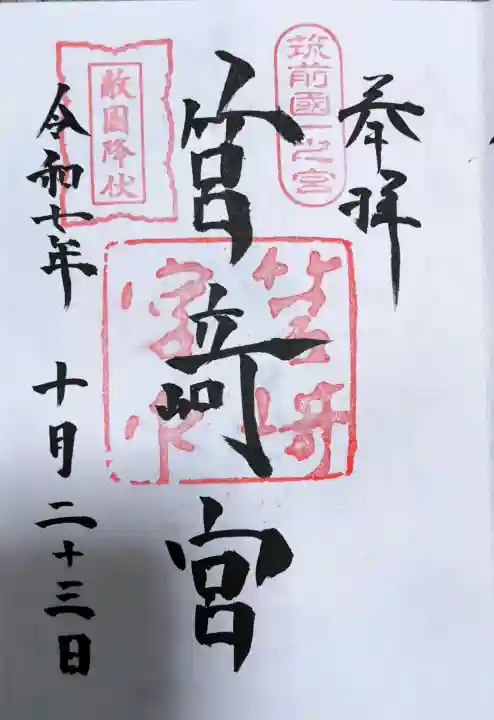 奉拝
筑前國一之宮
筥崎宮
敵国降伏
令和七年 十月二十三日